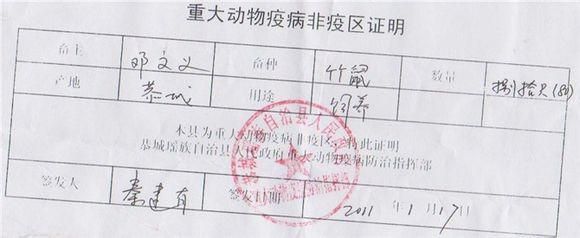 重大动物疫病非疫区证明
畜主 邓文义 畜种 竹鼠 数量 捌拾只(80)
产地 恭城 用途 饲养
本县为重大动物疫病非疫区,特此证明
恭城瑶族自治县人民政府重大动物疫病防治指挥部
签发人 秦建有 签发日期 2011年1月17日